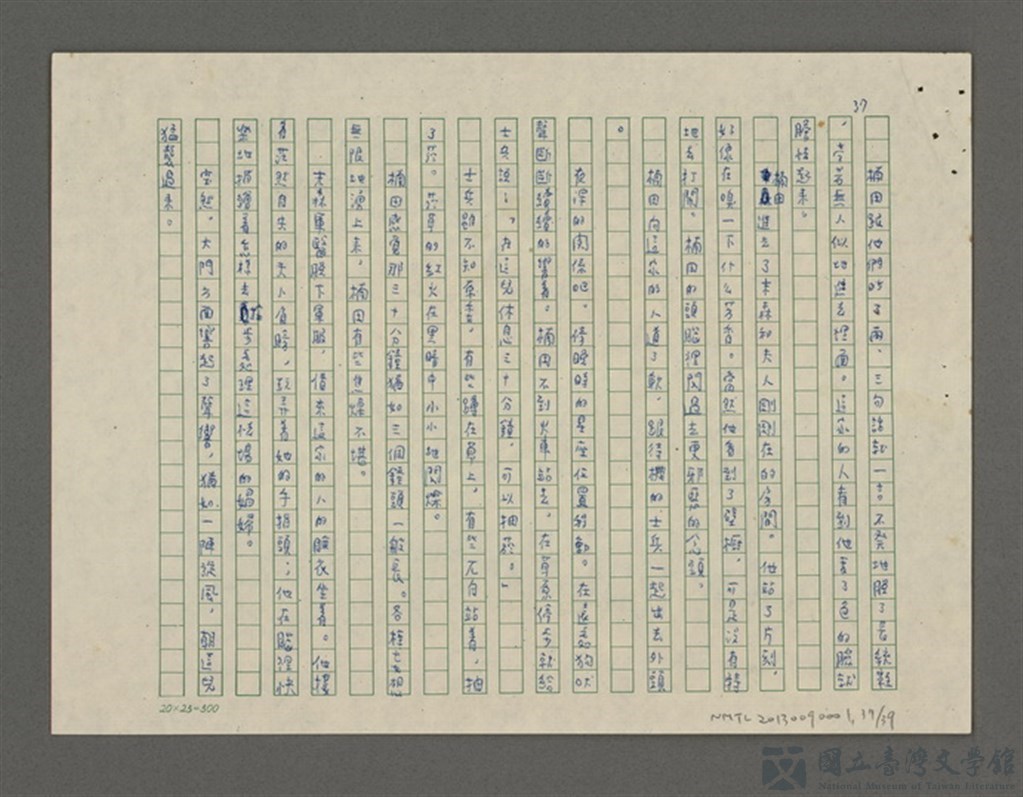 37
楠田跟他們吵了兩、三句話就一言不發地脫了長統鞋
，旁若無人似地進去裡面。這家的人看到他變了色的臉就
騷性起來。
楠田進去了末森和夫人剛剛在的房間。他站了片刻，
好像在嗅一下什么芳香。當然他看到了壁櫥，可是沒有特
地去打開。楠田的頭腦裡閃過去更邪惡的念頭。
楠田向這家的人道了歉，跟待機的士兵一起出去外頭
。
夜深的関係吧。停時的星座位置移動。在遠方狗吠
聲斷斷續續的響着。楠田不到火車站去，在草原停步就給
士兵說：「在這兒休息三十分鐘，可以抽菸。」
士兵雖不知原委，有些蹲在草上，有些兀自站着，抽
了菸。菸草的紅火在黑暗中小小地閃爍。
楠田感覺那三十分鐘猶如三個鐘頭一般長。各種妄想
無限地湧上來，楠田有些焦燥不堪。
末森軍醫脫下軍服，借來這家的人的睡衣坐着。他摟
着茫然自失的夫人肩膀，玩弄着她的手指頭；他在腦裡快
樂地描繪着怎樣去處理這情場的媚婦。
忽然，大門方面響起了聲響，猶如一陣旋風，朝這兒
猛襲過來。
20×25=500
NMTL 20130090001, 39/39
國立臺灣文學館
National Museum of Taiwan Literature